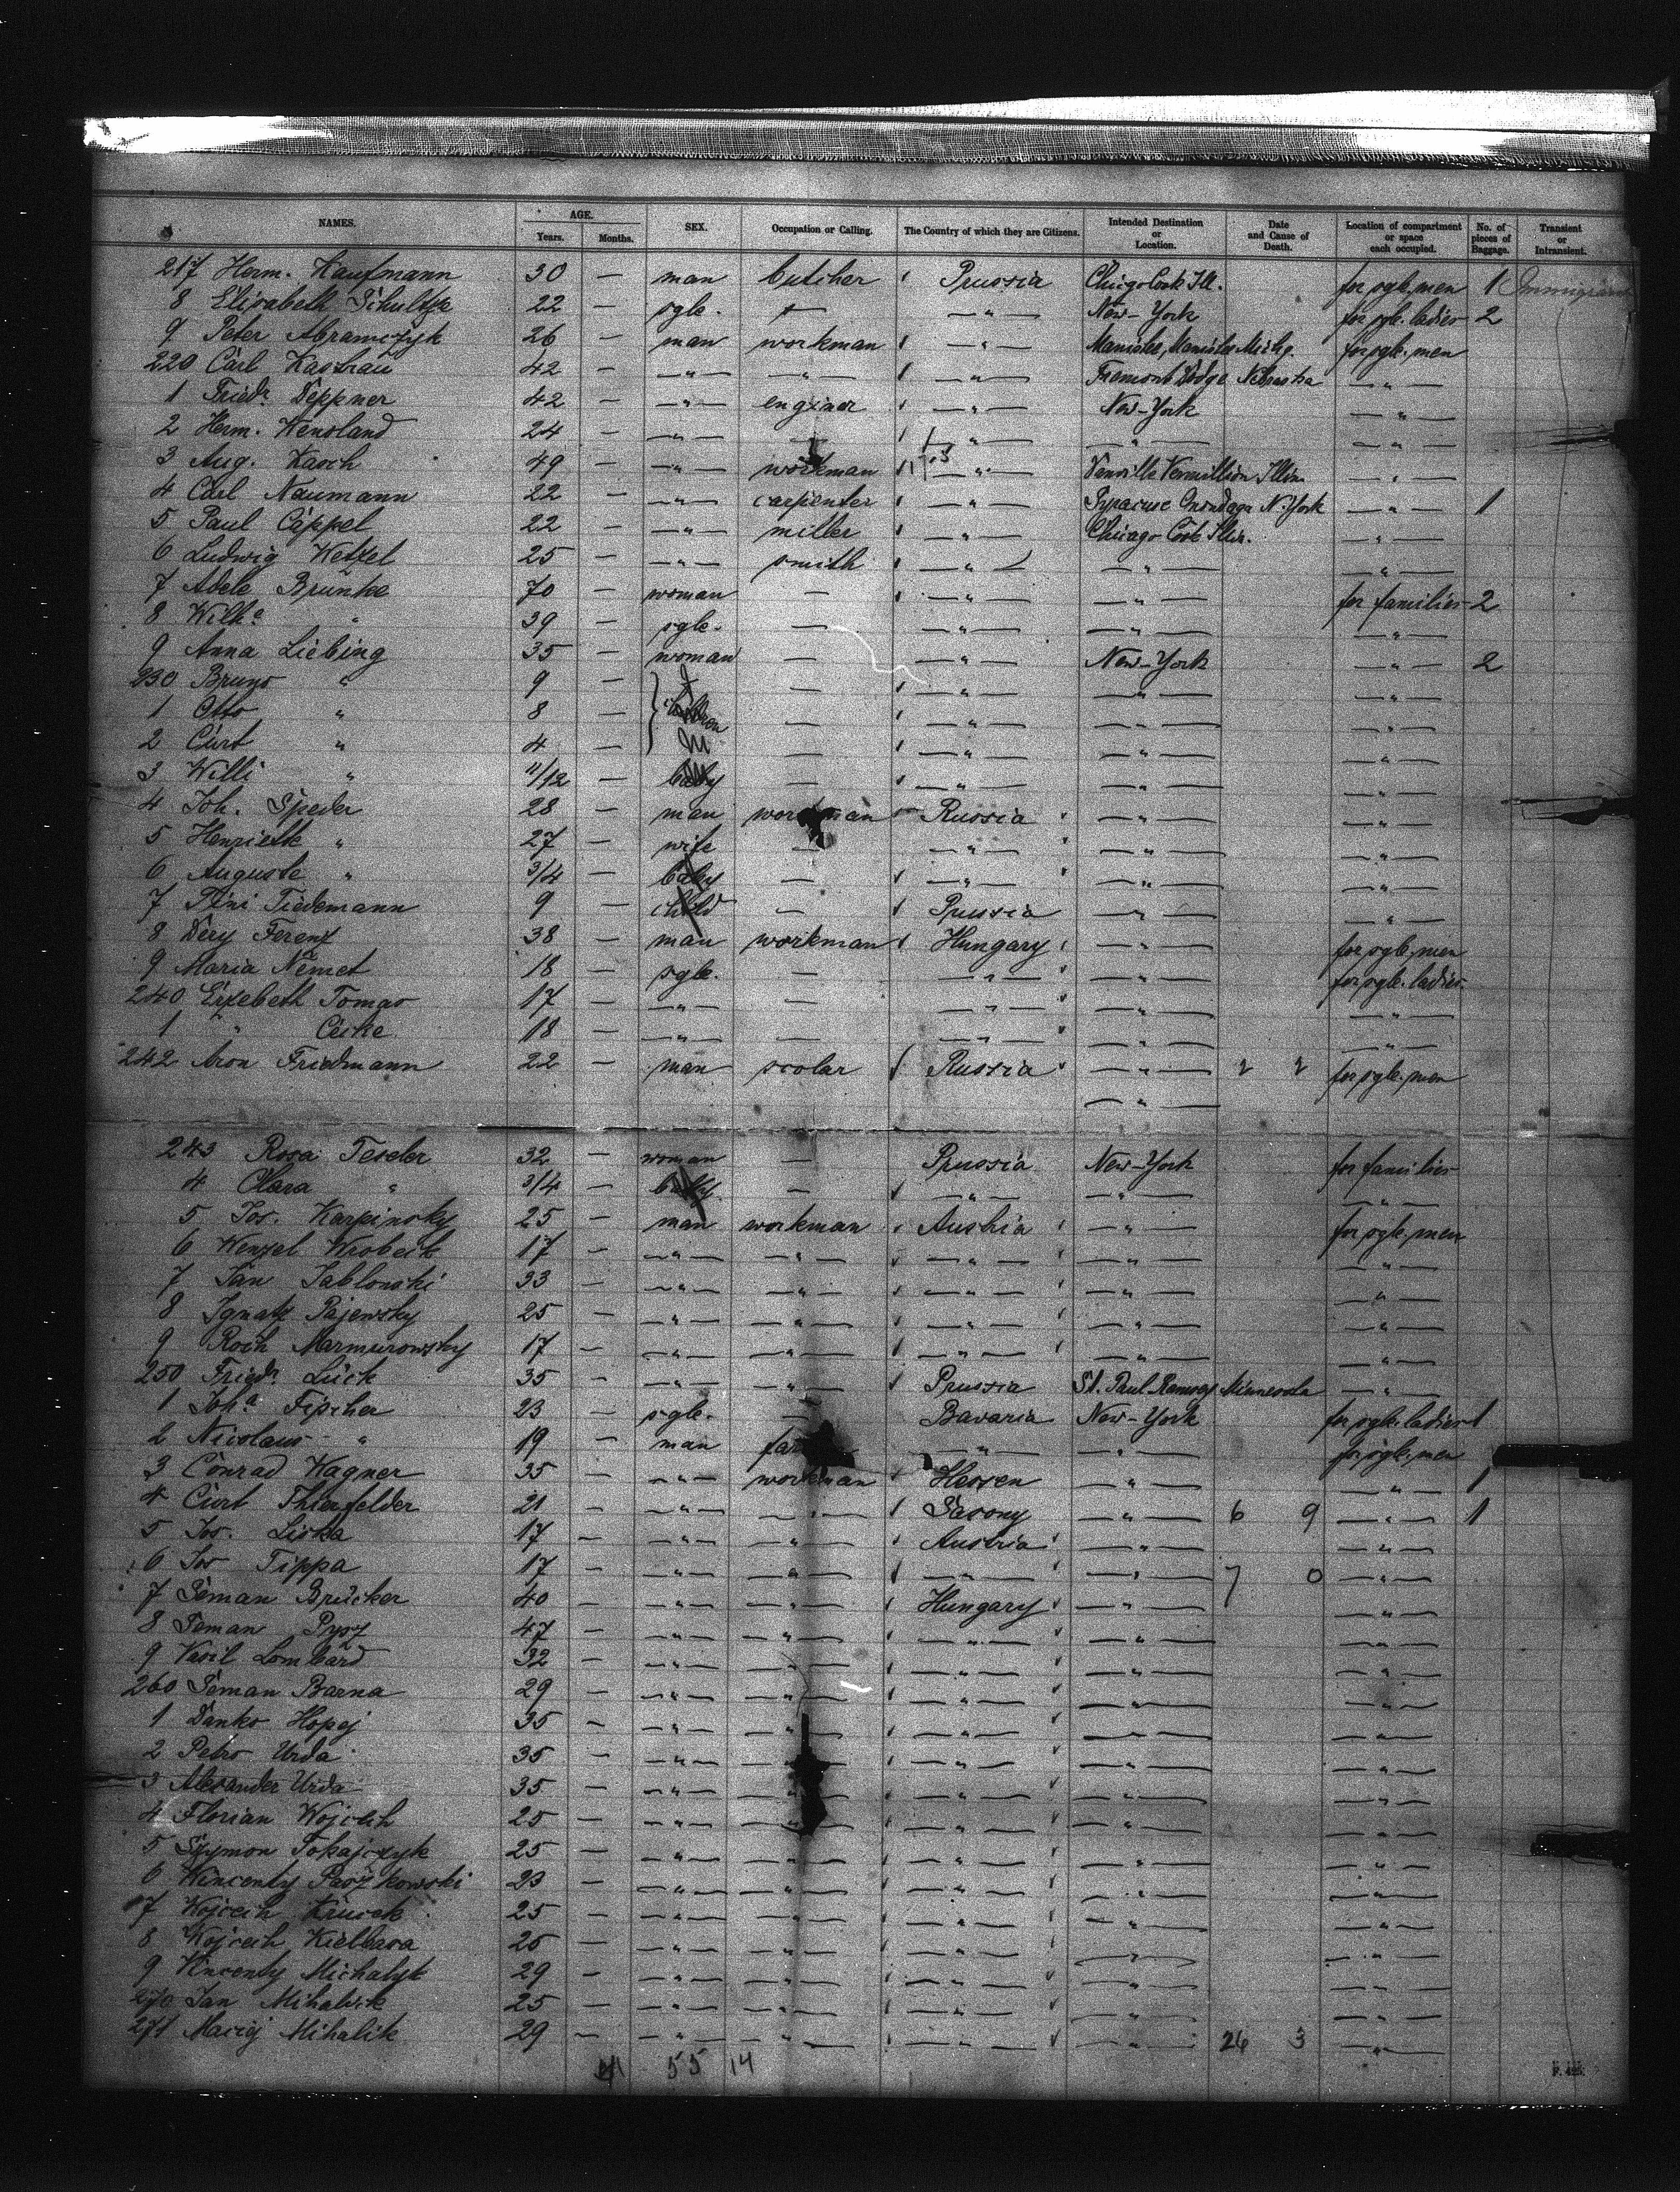 NAMES. AGE. Years. Months. SEX. Occupation or Calling. The Country of which they are Citizens. Intended Destination or Location. Date and Cause of Death. Location of compartment or space each occupied. No. of pieces of Baggage. Transient or Intransient.
217 Herm. Kaufmann 30 — man butcher Prussia Chicago Cook Ill. for sgle. men 1 Immigrant
8 Elisabeth Schultze 22 — sgle. — " New-York for sgle. ladies 2
9 Peter Abramczyk 26 — man workman " Manistee, Manistee Michg. for sgle. men
220 Carl Kastrau 42 — " " " Fremont Dodge Nebraska "
1 Friedr. Deppner 42 — " enginer " New-York "
2 Herm. Wensland 24 — " — " " "
3 Aug. Kasch 49 — " workman " Danville Vermillion Illin. "
4 Carl Naumann 22 — " carpenter " Syracuse Onondaga N. York " 1
5 Paul Cappel 22 — " miller " Chicago Cook Illin. "
6 Ludwig Wetzel 25 — " smith " " "
7 Adele Brünke 70 — woman — " " for families 2
8 Wilh.e " 39 — sgle. — " " "
9 Anna Liebing 35 — woman — " New-York " 2
230 Bruno " 9 — children — " " "
1 Otto " 8 — — " " "
2 Curt " 4 — — " " "
3 Willi " 11/12 — baby — " " "
4 Joh. Speder 28 — man workman Russia " "
5 Henriette " 27 — wife — " " "
6 Auguste " 3/4 — baby — " " "
7 Tiedemann 9 — child — Prussia " "
8 Dery Ferenz 38 — man workman Hungary " for sgle. men
9 Maria Nemet 18 — sgle. — " " for sgle. ladies
240 Erzebeth Tomas 17 — " — " " "
1 " Cecke 18 — " — " " "
242 Aron Friedmann 22 — man scolar Russia " 2 2 for sgle. men
"
243 Rosa Teseler 32 — woman — Prussia New-York for families
4 Clara " 3/4 — baby — " " "
5 Jos. Karpinsky 25 — man workman Austria " for sgle. men
6 Wenzel Wrobeck 17 — " " " " "
7 Jan Jablonski 33 — " " " " "
8 Ignatz Pajewsky 25 — " " " " "
9 Roch Marmurowsky 17 — " " " " "
250 Friedr. Lück 35 — " " Prussia St. Paul Ramsey Minnesota "
1 Joh.a Fischer 23 — sgle. — Bavaria New-York for sgle. ladies 1
2 Nicolaus " 19 — man " " for sgle. men
3 Conrad Wagner 35 — " workman Hessen " " 1
4 Curt Thierfelder 21 — " " Saxony " 6 9 " 1
5 Jos. Liska 17 — " " Austria " "
6 Jos Tippa 17 — " " " " 7 0 "
7 Seman Brücker 40 — " " Hungary " "
8 Seman Pysz 47 — " " " " "
9 Vasil Lombard 32 — " " " " "
260 Seman Barna 29 — " " " " "
1 Danko Hopej 35 — " " " " "
2 Petro Urda 35 — " " " " "
3 Alexander Urda 35 — " " " " "
4 Florian Wojcieh 25 — " " " " "
5 Szymon Tokajczyk 25 — " " " " "
6 Wincenty Paszkowski 23 — " " " " "
7 Wojcech 25 — " " " " "
8 Wojcech Kielbasa 25 — " " " " "
9 Vincenty Michalyk 29 — " " " " "
270 Jan Mihalik 25 — " " " " "
271 Maciej Mihalik 29 — " " " " 26 3 "
41 55 14